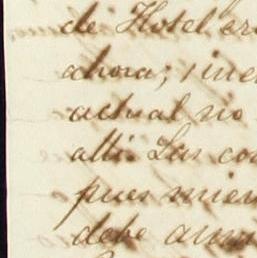 de Hotel er
ahora; i me
actual no
alli. Las co
pues mien
debe aun